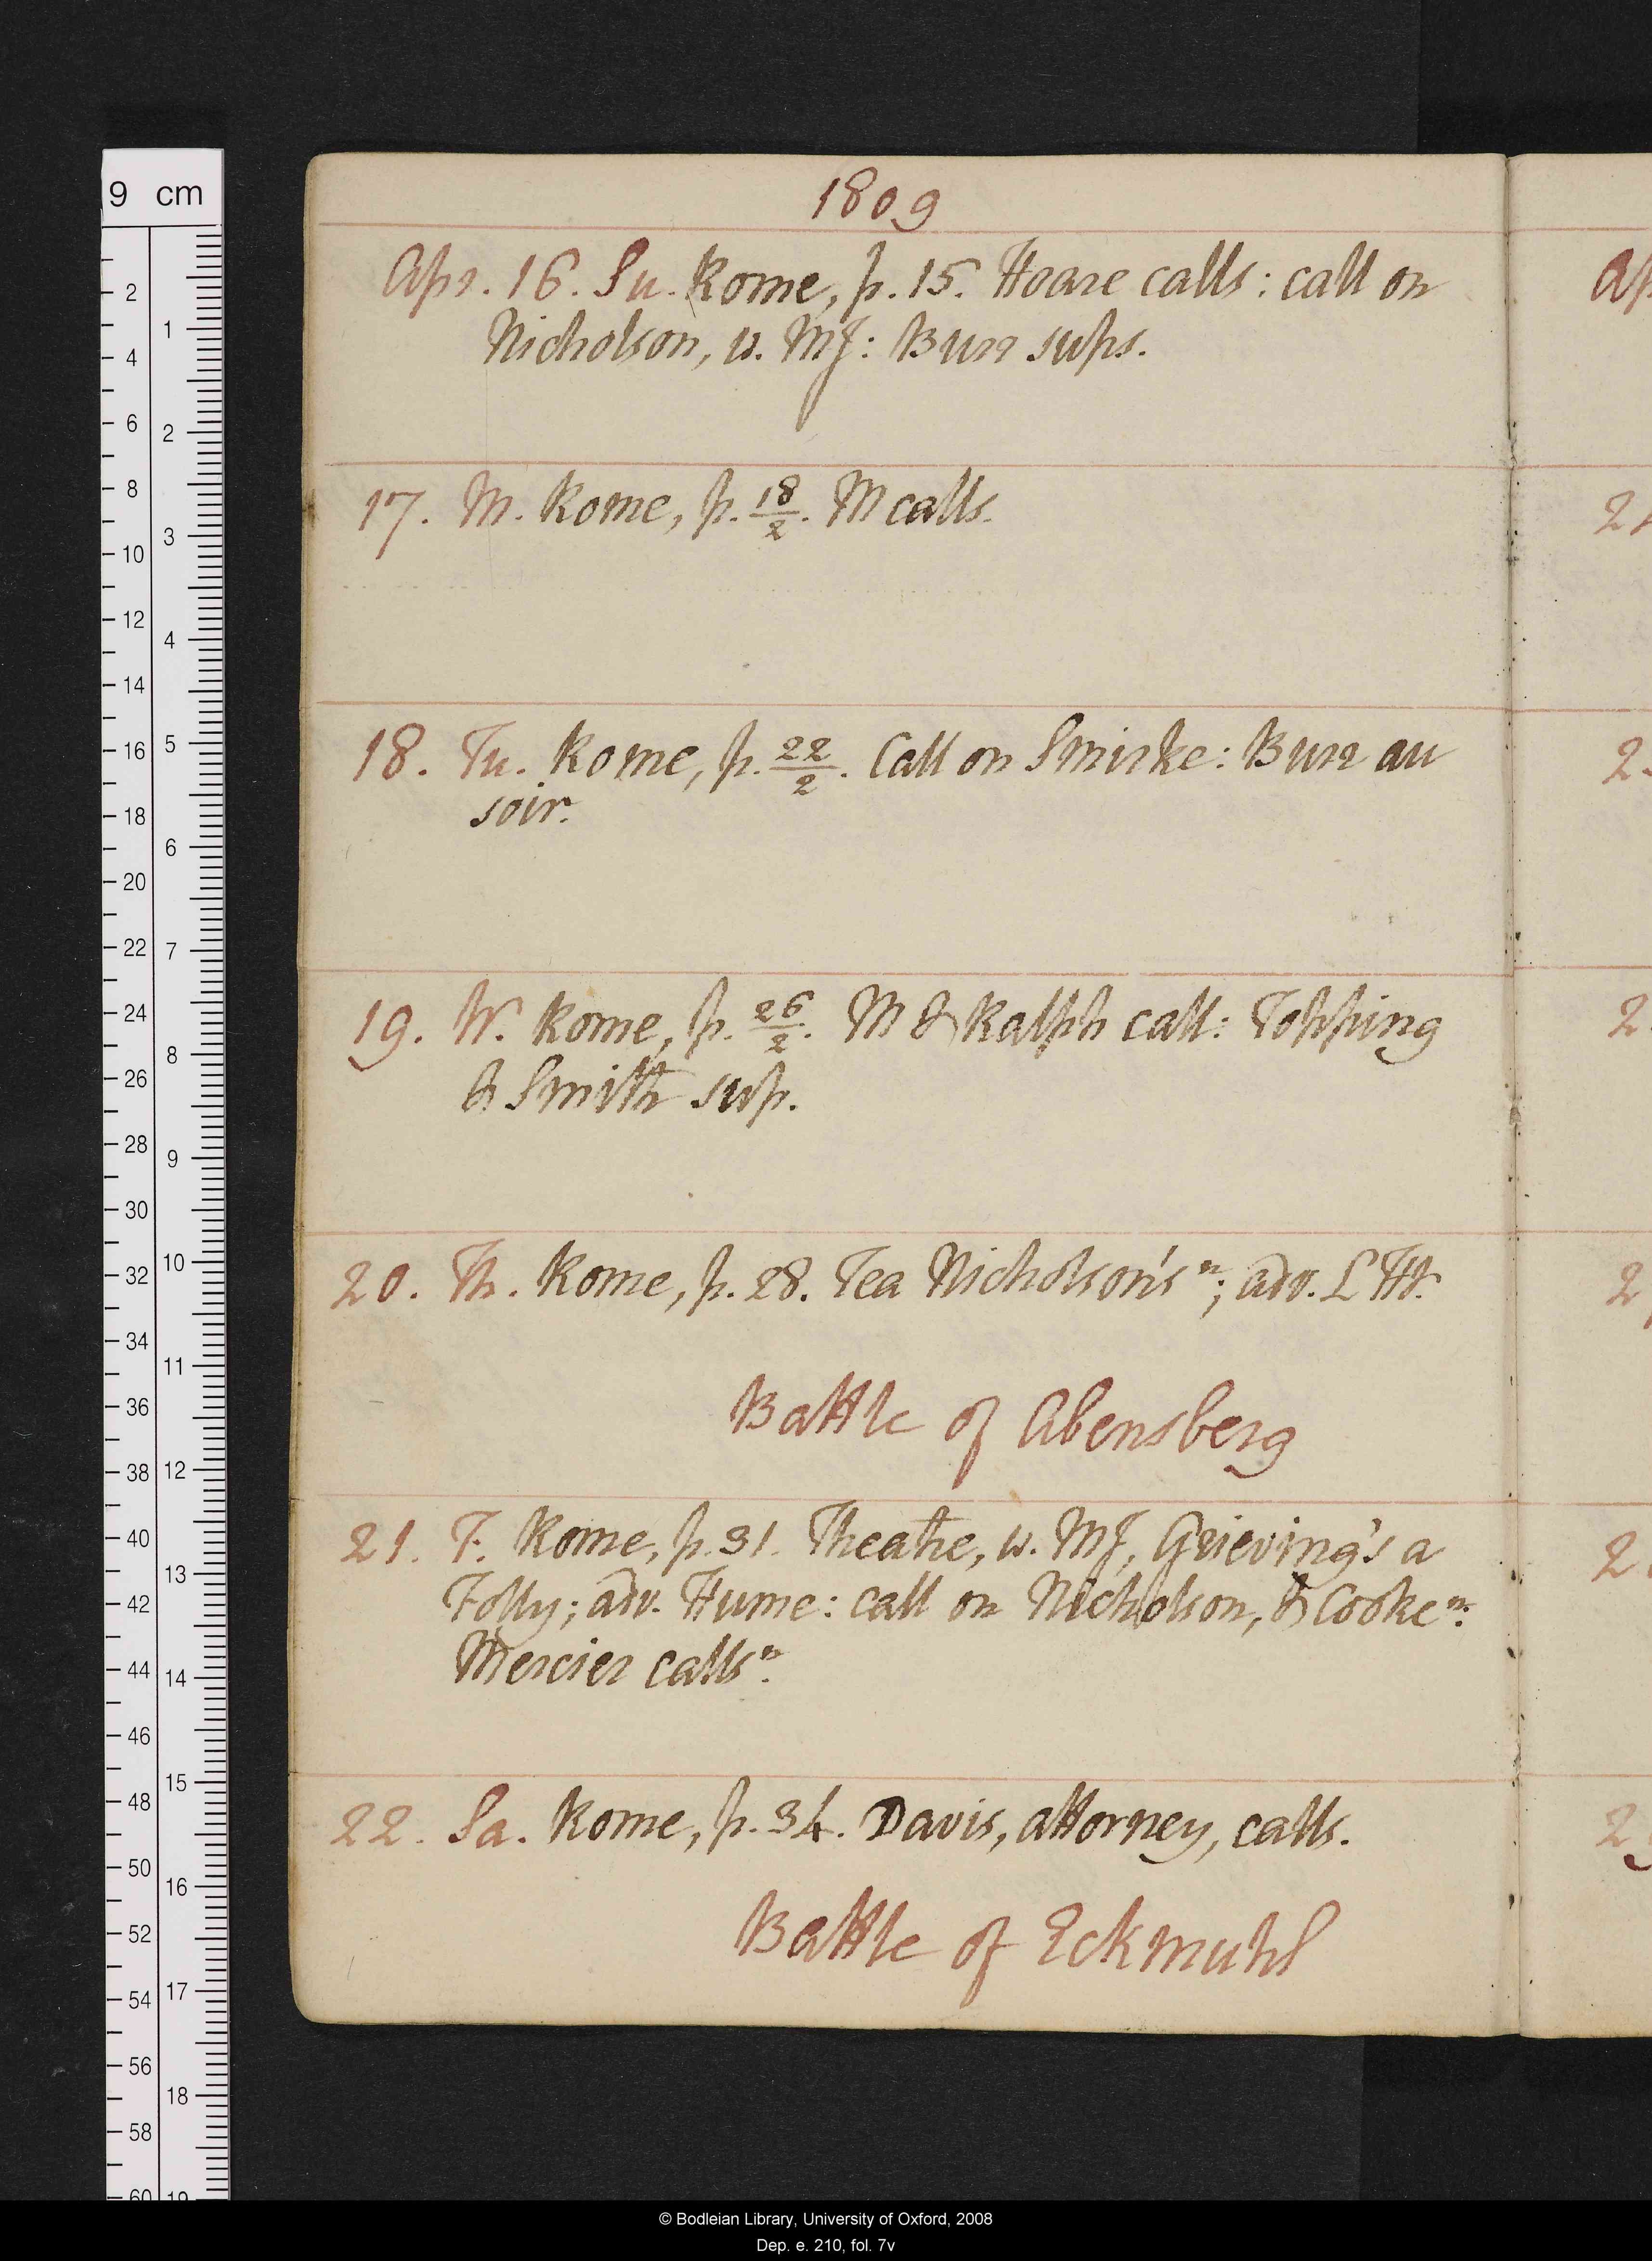 9 cm
1809
Apr. 16. Su. Rome, p. 15. Hoare calls: call on
Nicholson, w. MJ: Burr sups.
17. M. Rome, p. 18/2. M calls.
18. Tu. Rome, p. 22/2. Call on Smirke: Burr au
soir.
19. W. Rome, p. 26/2. M & Ralph call: Topping
& Smith sup.
20. Th. Rome, p. 28. Tea Nicholson's n; adv. LHt.
Battle of Abensberg
21. F. Rome, p. 31. Theatre, w. MJ, Grieving's a
Folly; adv. Hume: call on Nicholson, & Cooke n:
Mercier calls n.
22. Sa. Rome, p. 34. Davis, attorney, calls.
Battle of Eckmuhl
© Bodleian Library, University of Oxford, 2008
Dep. e. 210, fol. 7v